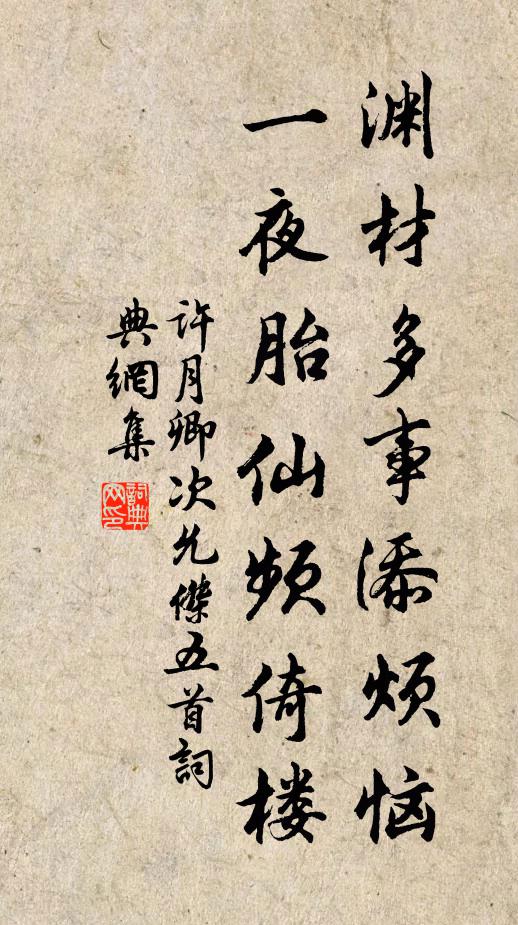 渊材多事添烦恼
一夜胎仙频倚楼
许月卿次允傑五首詞
典網集
詞典網印